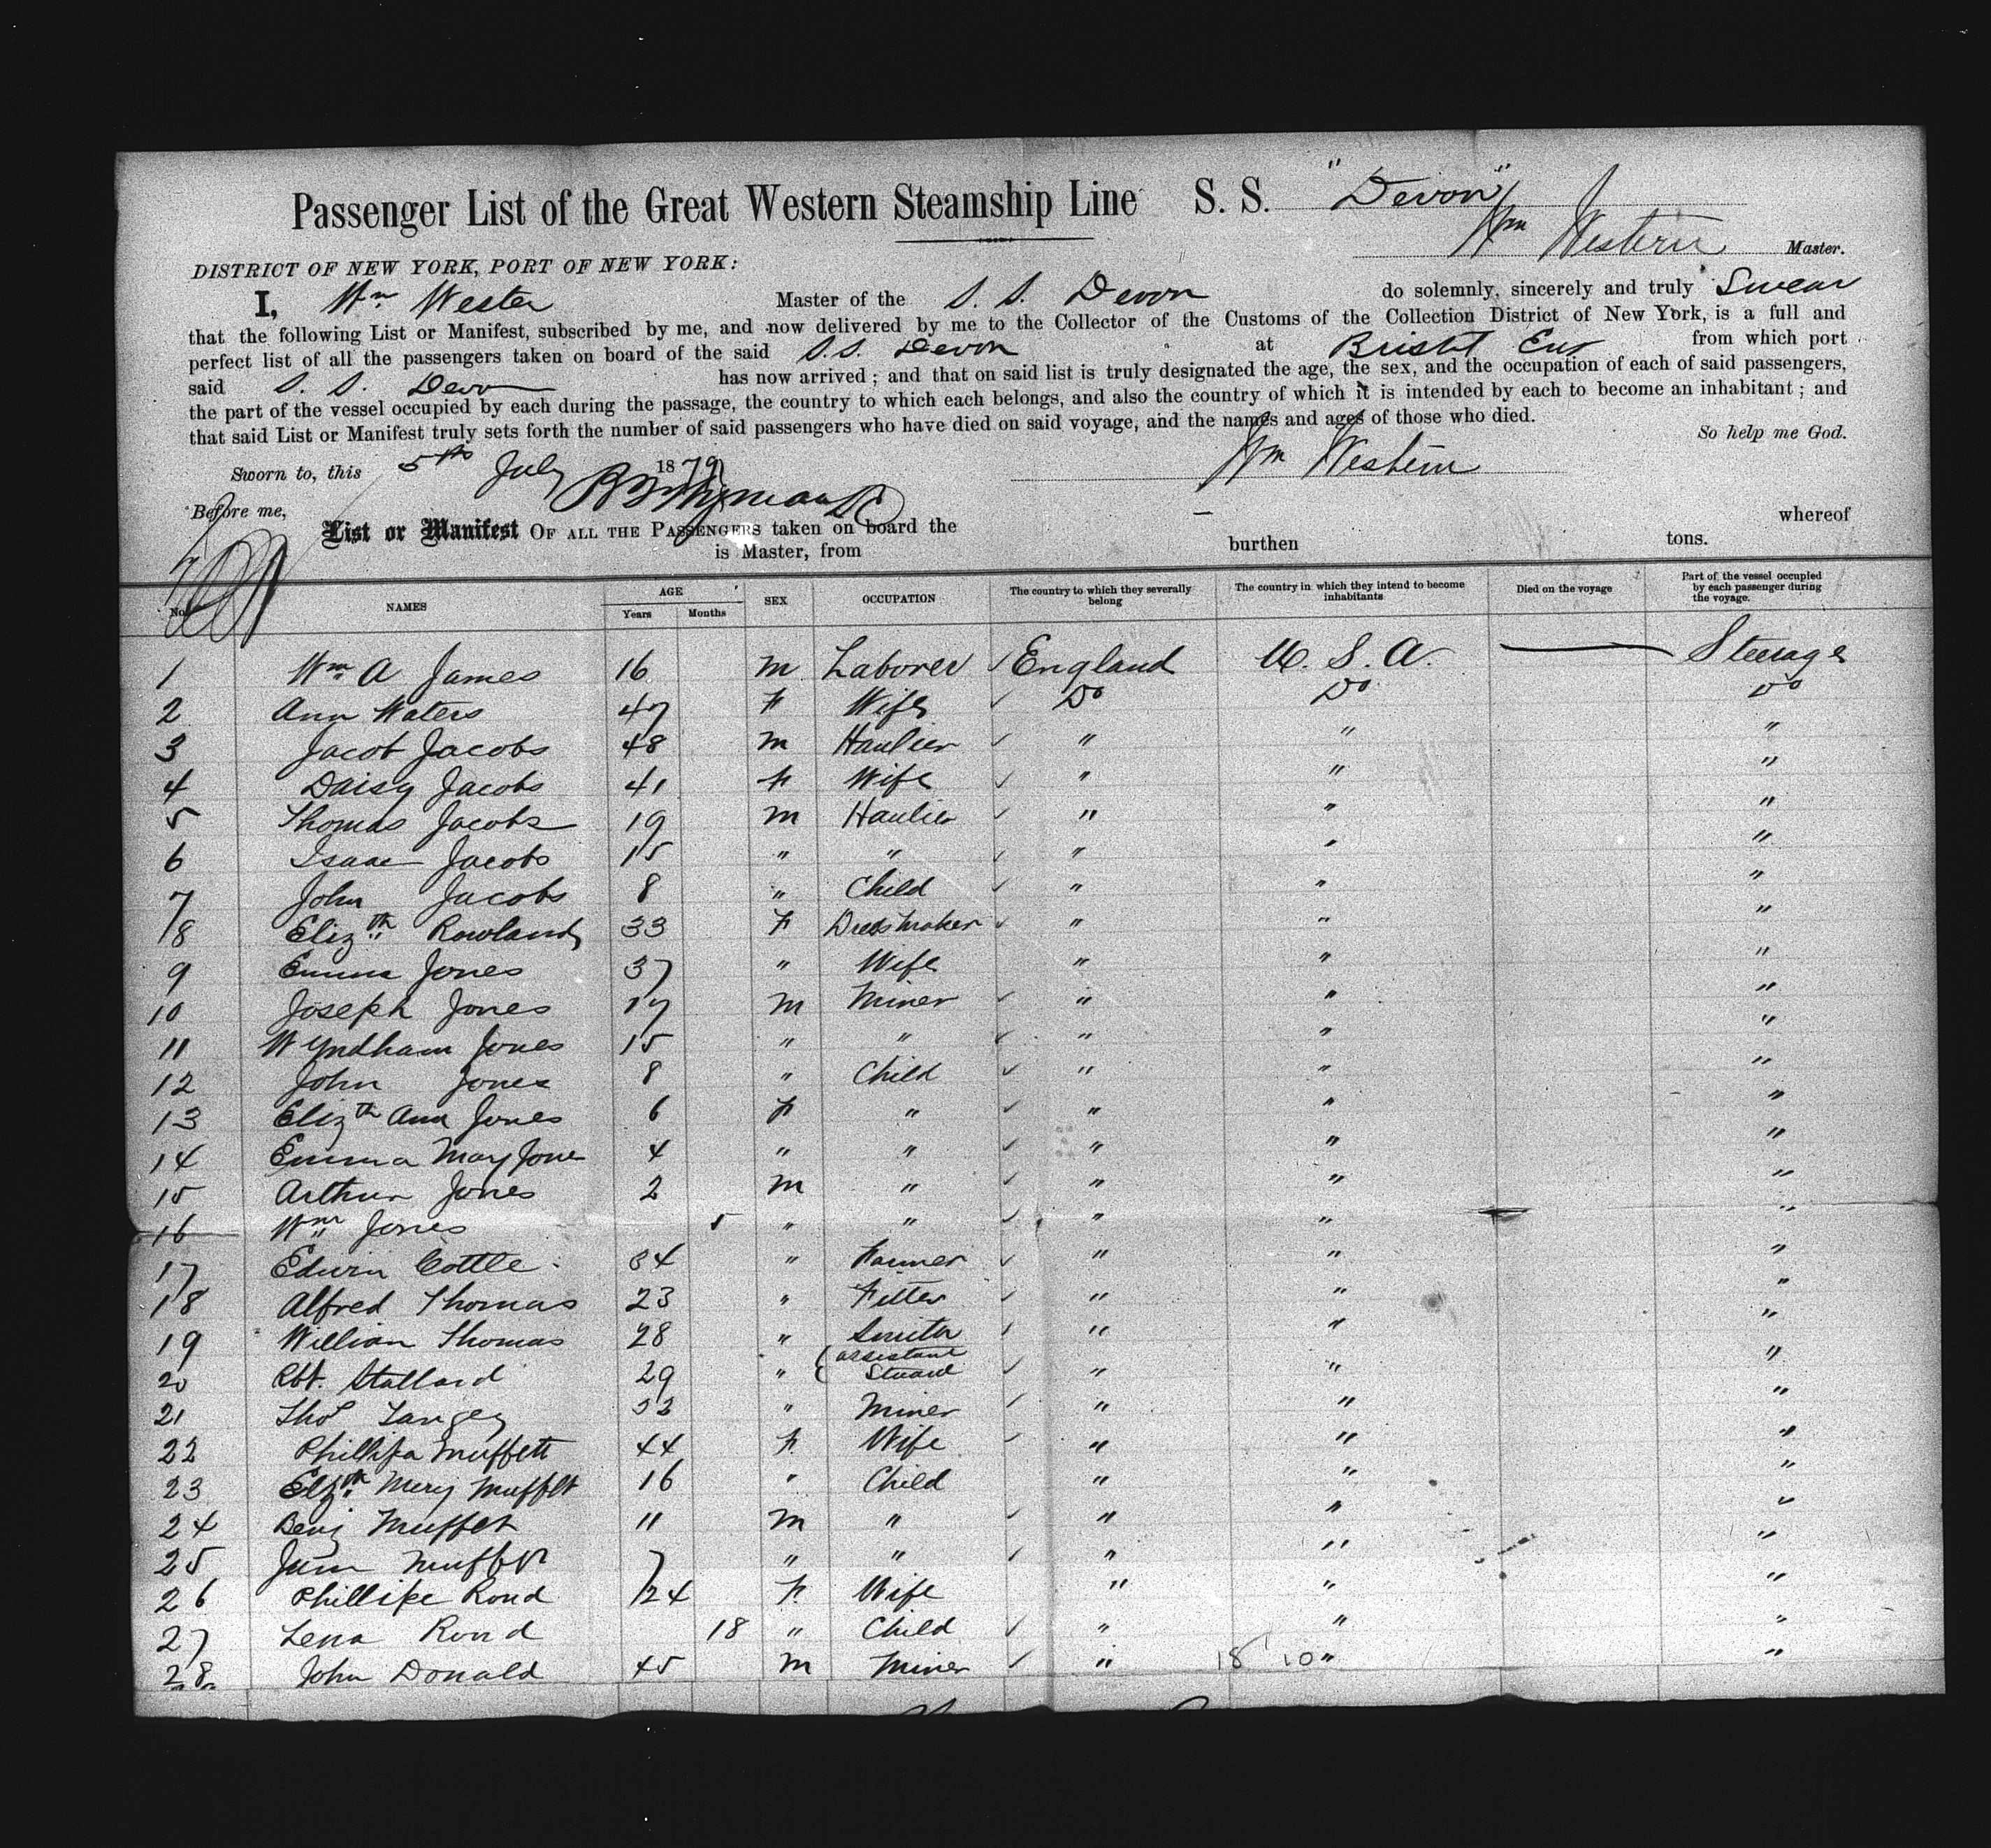 Passenger List of the Great Western Steamship Line S. S. "Devon"
Wm Western Master.
DISTRICT OF NEW YORK, PORT OF NEW YORK:
I, Wm Wester Master of the S. S. Devon do solemnly, sincerely and truly Swear
that the following List or Manifest, subscribed by me, and now delivered by me to the Collector of the Customs of the Collection District of New York, is a full and
perfect list of all the passengers taken on board of the said S.S. Devon at Bristol Eng from which port
said S. S. Devon has now arrived; and that on said list is truly designated the age, the sex, and the occupation of each of said passengers,
the part of the vessel occupied by each during the passage, the country to which each belongs, and also the country of which it is intended by each to become an inhabitant; and
that said List or Manifest truly sets forth the number of said passengers who have died on said voyage, and the names and ages of those who died.
So help me God.
Sworn to, this 5th July 1879 Wm Western
Before me,
List or Manifest OF ALL THE PASSENGERS taken on board the whereof
is Master, from burthen tons.
No. NAMES AGE Years Months SEX OCCUPATION The country to which they severally belong The country in which they intend to become inhabitants Died on the voyage Part of the vessel occupied by each passenger during the voyage.
1 Wm A James 16 m Laborer ✓ England U. S. A. — Steerage
2 Ann Waters 47 f Wife ✓ Do Do Do
3 Jacob Jacobs 48 m Haulier ✓ " " "
4 Daisy Jacobs 41 f Wife ✓ " " "
5 Thomas Jacobs 19 m Haulier ✓ " " "
6 Isaac Jacobs 15 " " ✓ " " "
7 John Jacobs 8 " Child ✓ " " "
8 Elizth Rowlands 33 f Dressmaker ✓ " " "
9 Emma Jones 37 " Wife " " "
10 Joseph Jones 17 m Miner ✓ " " "
11 Wyndham Jones 15 " " ✓ " " "
12 John Jones 8 " Child ✓ " " "
13 Elizth Ann Jones 6 f " ✓ " " "
14 Emma Mary Jone 4 " " ✓ " " "
15 Arthur Jones 2 m " ✓ " " "
16 Wm Jones 5 " " ✓ " " "
17 Edwin Cottle 34 " Farmer ✓ " " "
18 Alfred Thomas 23 " Fitter ✓ " " "
19 William Thomas 28 " Smith ✓ " " "
20 Rbt. Stallard 29 " assistant Stuard ✓ " " "
21 Thos 33 " Miner ✓ " " "
22 Phillipa Muffett 44 f Wife ✓ " " "
23 Elzth Mery Mufflt 16 " Child " " "
24 Benj Muffet 11 m " ✓ " " "
25 7 " " ✓ " " "
26 Phillipe Rond 24 f. Wife " " "
27 Lena Rond 18 " Child ✓ " " "
28 John Donald 45 m Miner ✓ " 18 10 " "